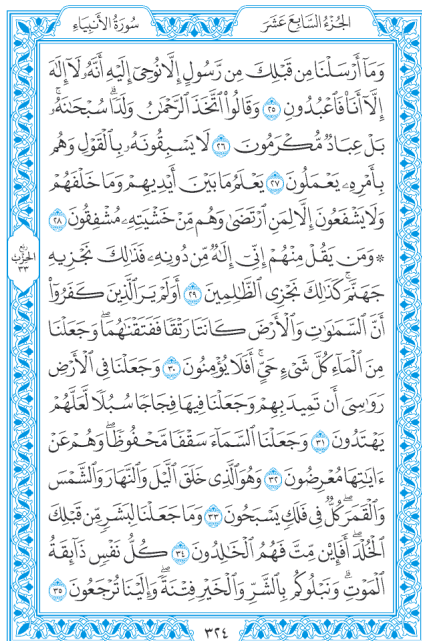 الجُزْءُ السَّابِعَ عَشَرَ
سُورَةُ الأَنْبِيَاءِ
وَمَآ أَرْسَلْنَا مِن قَبْلِكَ مِن رَّسُولٍ إِلَّا نُوحِىٓ إِلَيْهِ أَنَّهُۥ لَآ إِلَٰهَ
إِلَّآ أَنَا۠ فَٱعْبُدُونِ ٢٥ وَقَالُوا۟ ٱتَّخَذَ ٱلرَّحْمَٰنُ وَلَدًا ۗ سُبْحَٰنَهُۥ ۚ
بَلْ عِبَادٌ مُّكْرَمُونَ ٢٦ لَا يَسْبِقُونَهُۥ بِٱلْقَوْلِ وَهُم
بِأَمْرِهِۦ يَعْمَلُونَ ٢٧ يَعْلَمُ مَا بَيْنَ أَيْدِيهِمْ وَمَا خَلْفَهُمْ
وَلَا يَشْفَعُونَ إِلَّا لِمَنِ ٱرْتَضَىٰ وَهُم مِّنْ خَشْيَتِهِۦ مُشْفِقُونَ ٢٨
۞ وَمَن يَقُلْ مِنْهُمْ إِنِّىٓ إِلَٰهٌ مِّن دُونِهِۦ فَذَٰلِكَ نَجْزِيهِ
جَهَنَّمَ ۚ كَذَٰلِكَ نَجْزِى ٱلظَّٰلِمِينَ ٢٩ أَوَلَمْ يَرَ ٱلَّذِينَ كَفَرُوٓا۟
أَنَّ ٱلسَّمَٰوَٰتِ وَٱلْأَرْضَ كَانَتَا رَتْقًا فَفَتَقْنَٰهُمَا ۖ وَجَعَلْنَا
مِنَ ٱلْمَآءِ كُلَّ شَىْءٍ حَىٍّ ۖ أَفَلَا يُؤْمِنُونَ ٣٠ وَجَعَلْنَا فِى ٱلْأَرْضِ
رَوَٰسِىَ أَن تَمِيدَ بِهِمْ وَجَعَلْنَا فِيهَا فِجَاجًا سُبُلًا لَّعَلَّهُمْ
يَهْتَدُونَ ٣١ وَجَعَلْنَا ٱلسَّمَآءَ سَقْفًا مَّحْفُوظًا ۖ وَهُمْ عَنْ
ءَايَٰتِهَا مُعْرِضُونَ ٣٢ وَهُوَ ٱلَّذِى خَلَقَ ٱلَّيْلَ وَٱلنَّهَارَ وَٱلشَّمْسَ
وَٱلْقَمَرَ ۖ كُلٌّ فِى فَلَكٍ يَسْبَحُونَ ٣٣ وَمَا جَعَلْنَا لِبَشَرٍ مِّن قَبْلِكَ
ٱلْخُلْدَ ۖ أَفَإِي۟ن مِّتَّ فَهُمُ ٱلْخَٰلِدُونَ ٣٤ كُلُّ نَفْسٍ ذَآئِقَةُ
ٱلْمَوْتِ ۗ وَنَبْلُوكُم بِٱلشَّرِّ وَٱلْخَيْرِ فِتْنَةً ۖ وَإِلَيْنَا تُرْجَعُونَ ٣٥
ربع
الحزب
٣٣
٣٢٤